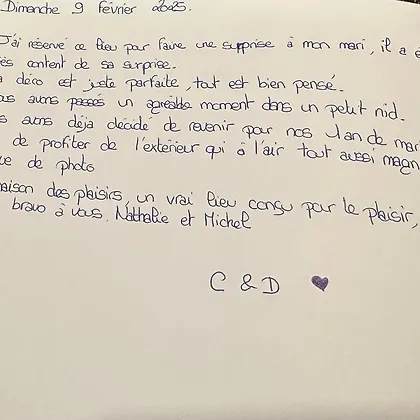 Dimanche 9 février 2025.
J'ai réservé ce lieu pour faire une surprise à mon mari, il a é
content de sa surprise.
déco est juste parfaite, tout est bien pensé.
avons passés un agréable moment dans un petit nid.
avons déjà décidé de revenir pour nos 1 an de mar
de profiter de l'extérieur qui à l'air tout aussi magn
de photo
aison des plaisirs, un vrai lieu conçu par le plaisir,
bravo à vous. Nathalie et Michel
C & D ♥